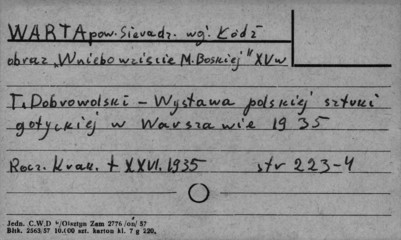 WARTA pow. Sieradz. wg. Łódź
obraz „Wniebowzięcie M. Boskiej" XV w
T. Dobrowolski – Wystawa polskiej sztuki
gotyckiej w Warszawie 1935
Rocz. Krak. t XXVI. 1935 str 223-4
Jedn. C.W.D Olsztyn Zam 2776 57
Bltk. 2563/57 10.000 szt. karton kl. 7 g 220.